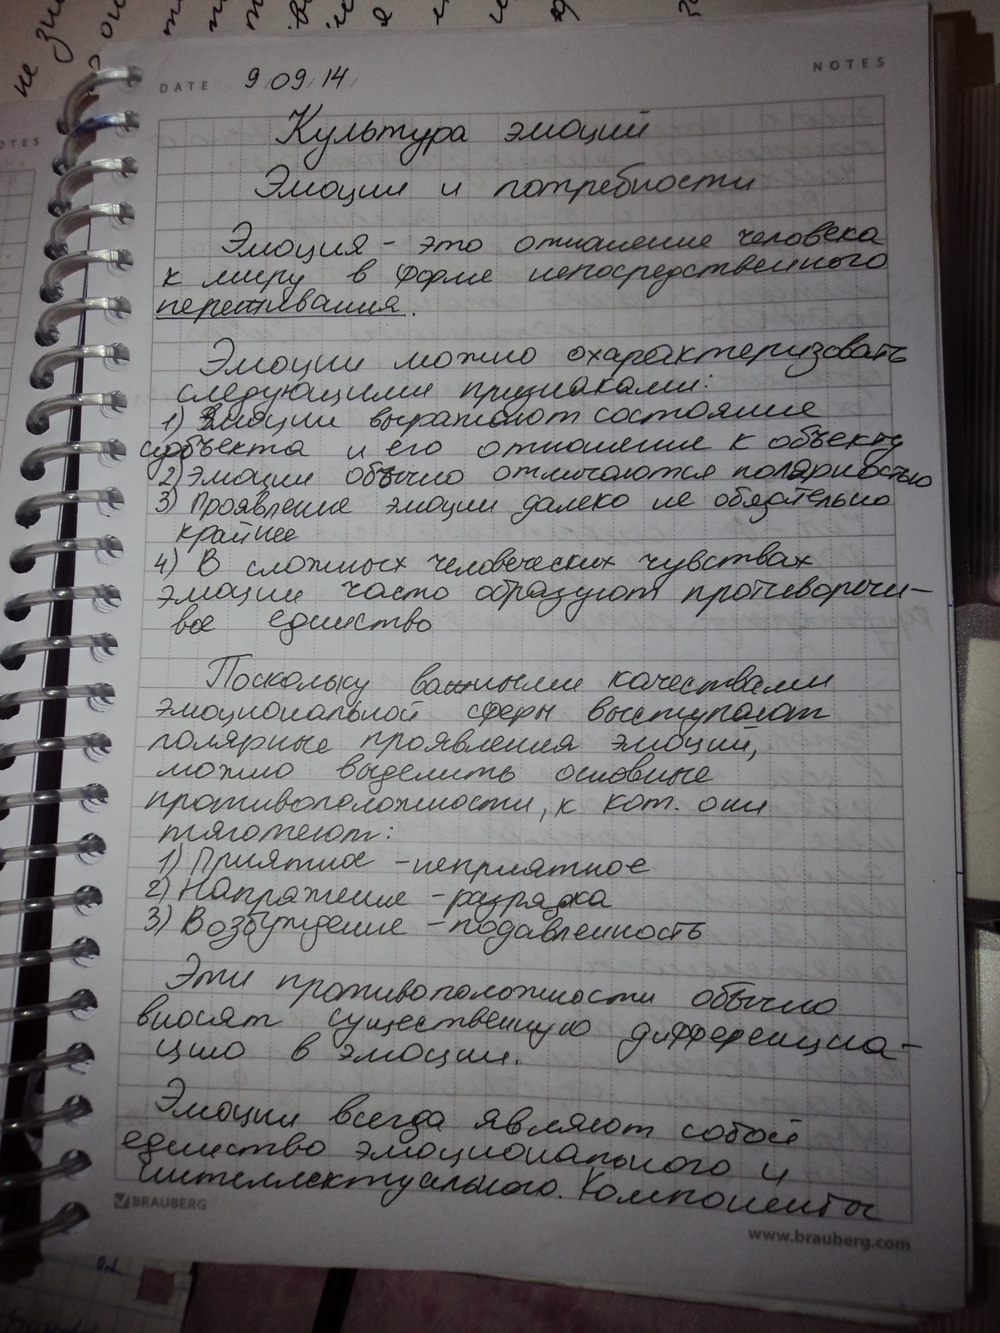 не
NOTES
DATE 9.09.14
NOTES
Культура эмоций
Эмоции и потребности
Эмоция - это отношение человека
к миру в форме непосредственного
переживания.
Эмоции можно охарактеризовать
следующими признаками:
1) Эмоции выражают состояние
субъекта и его отношение к объекту
2) Эмоции обычно отличаются полярностью
3) Проявление эмоции далеко не обязательно
крайнее
4) В сложных человеческих чувствах
эмоции часто образуют противоречи-
вое единство
Поскольку важными качествами
эмоциональной сферы выступают
полярные проявления эмоций,
можно выделить основные
противоположности, к кот. они
тяготеют:
1) Приятное - неприятное
2) Напряжение - разрядка
3) Возбуждение - подавленность
Эти противоположности обычно
вносят существенную дифференциа-
цию в эмоции.
Эмоции всегда являют собой
единство эмоционального и
интеллектуального. Компоненты
BRAUBERG
www.brauberg.com